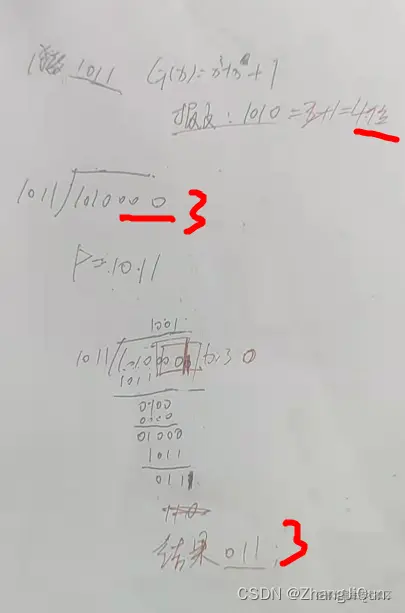 1011 G(x)=x³+x+1
报文:1010=3+1=4位
1011 1010000 3
P=1011
1001
1011
1011
0100
0000
01000
1011
011
结果 011; 3
CSDN @ZhangJiQun.